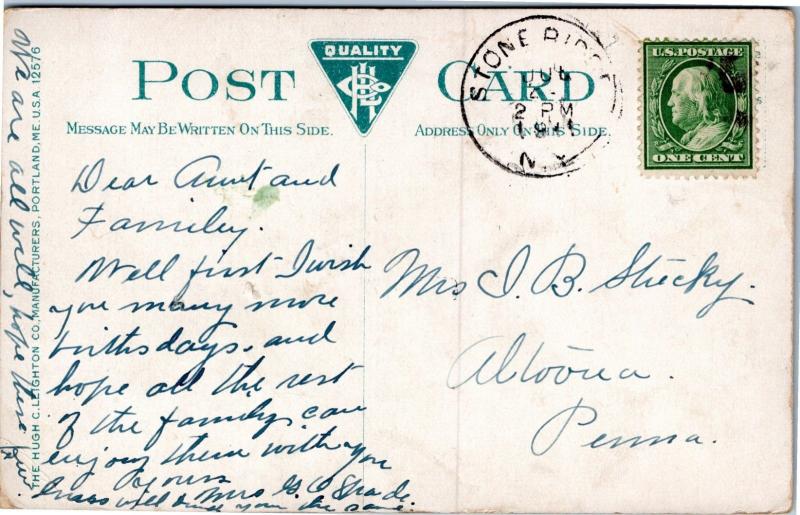 POST CARD
QUALITY
MESSAGE MAY BE WRITTEN ON THIS SIDE.
ADDRESS ONLY ON THIS SIDE.
STONE RIDGE
JUL
2 PM
1911
N.Y.
U.S. POSTAGE
ONE CENT
Dear Aunt and
Familey.
Well first I wish
you many more
birthsdays. and
hope all the rest
of the family can
enjoy them with you
yours
Mrs G. O Shade.
will find you the same.
We are all well, hope these few
THE HUGH C. LEIGHTON CO., MANUFACTURERS, PORTLAND, ME. U.S.A 12576
Mrs I. B. Stucky.
Altoona.
Penna.